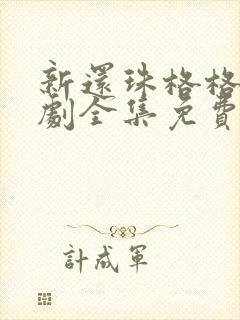 新還珠格格
劇全集免費
計成軍